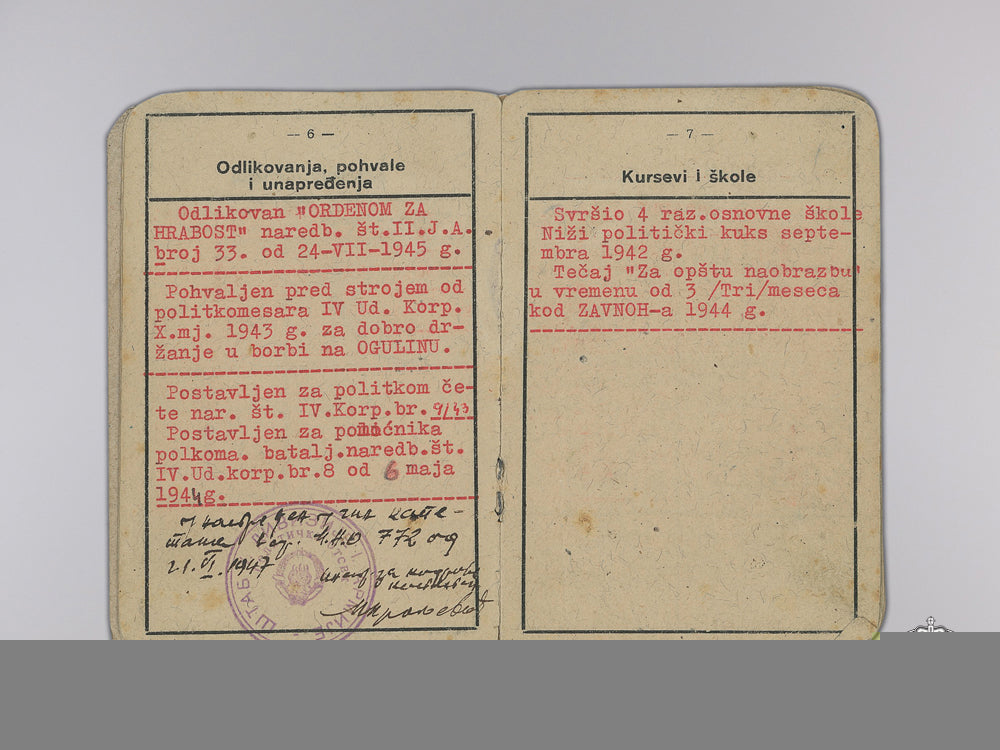 — 6 —
Odlikovanja, pohvale
i unapređenja
Odlikovan "ORDENOM ZA
HRABOST" naredb. št.II.J.A.
broj 33. od 24-VII-1945 g.
Pohvaljen pred strojem od
politkomesara IV Ud. Korp.
X.mj. 1943 g. za dobro dr-
žanje u borbi na OGULINU.
Postavljen za politkom če-
te nar. št. IV.Korp.br. 9/43
Postavljen za pomoćnika
polkoma. batalj.naredb.št.
IV.Ud.korp.br.8 od 6 maja
1944g.
Унапређен у чин капе-
тана 772 од
21.VI.1947
ШТАБ
— 7 —
Kursevi i škole
Svršio 4 raz.osnovne škole
Niži politički kuks septe-
mbra 1942 g.
Tečaj "Za opštu naobrazbu"
u vremenu od 3 /Tri/meseca
kod ZAVNOH-a 1944 g.